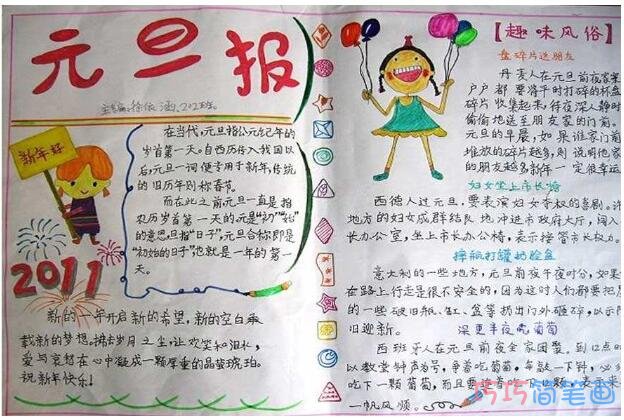 元旦报
主编:徐依涵,202班
新年好
2011
在当代,元旦指公元纪年的
岁首第一天。自西历传入我国以
后,元旦一词便专用于新年,传统
的旧历年则称春节。
而在此之前元旦一直是指
农历岁首第一天的。元是“初”“始”
的意思,旦指“日子”,元旦合称即是
“初始的日子”,也就是一年的第一
天。
新的一年开启新的希望,新的空白承
载新的梦想。拂拭岁月之尘,让欢笑和泪水、
爱与哀愁在心中凝成一颗厚重的晶莹琥珀。
祝新年快乐!
【趣味风俗】
盘碎片送朋友
丹麦人在元旦前夜家家
户户都要将平时打碎的杯盘
碎片收集起来,待夜深人静时
偷偷地送至朋友家的门前。
元旦的早晨,如果谁家门前
堆放的碎片越多,则说明他家
的朋友越多新年一定很幸运
妇女坐上市长椅
西德人过元旦,要表演妇女夺权的喜剧。许
地方的妇女成群结队地冲进市政府大厅,闯入
长办公室,坐上市长办公椅,表示接管市长权力。
摔瓶打罐扔脸盆
意大利的一些地方,元旦前夜午夜时分,如果
在路上行走是很不安全的,因为这时人们都要把屋
的一些破旧瓶、缸、盆等扔出门外砸碎,以示除
旧迎新。
深更半夜吃葡萄
西班牙人在元旦前夜全家团聚。到12点时
以教堂钟声为号,争着吃葡萄,每敲一下钟,必须
吃下一颗葡萄,而且要连着吃12颗,表示来
一帆风顺。
巧巧简笔画